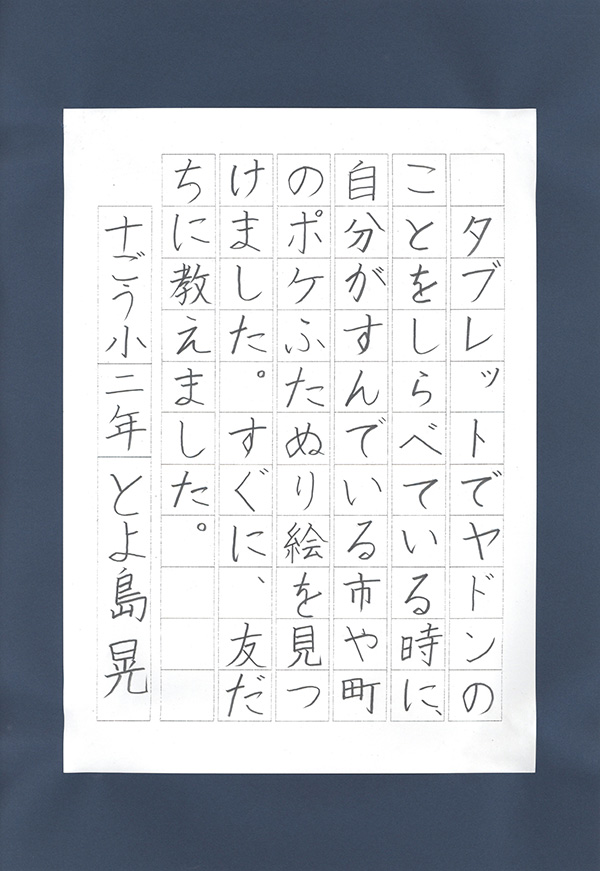 タブレットでヤドンの
ことをしらべている時に、
自分がすんでいる市や町
のポケふたぬり絵を見つ
けました。すぐに、友だ
ちに教えました。
十ごう小二年 とよ島晃